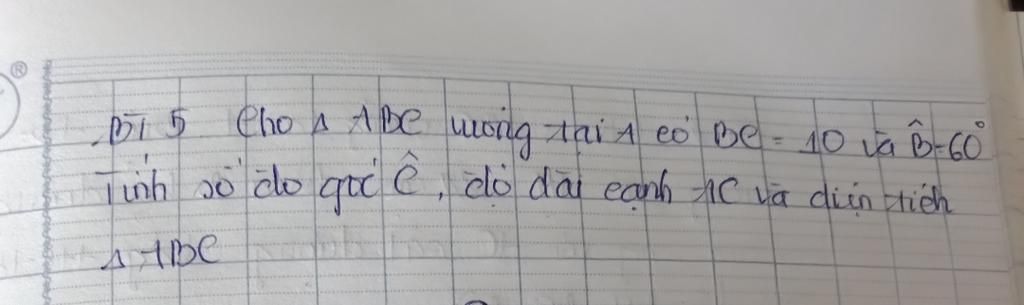 BT 5 Cho Δ ABC vuông tại A có BC = 10 và B̂=60°
Tính số đo góc Ĉ, độ dài cạnh AC và diện tích
Δ ABC
®